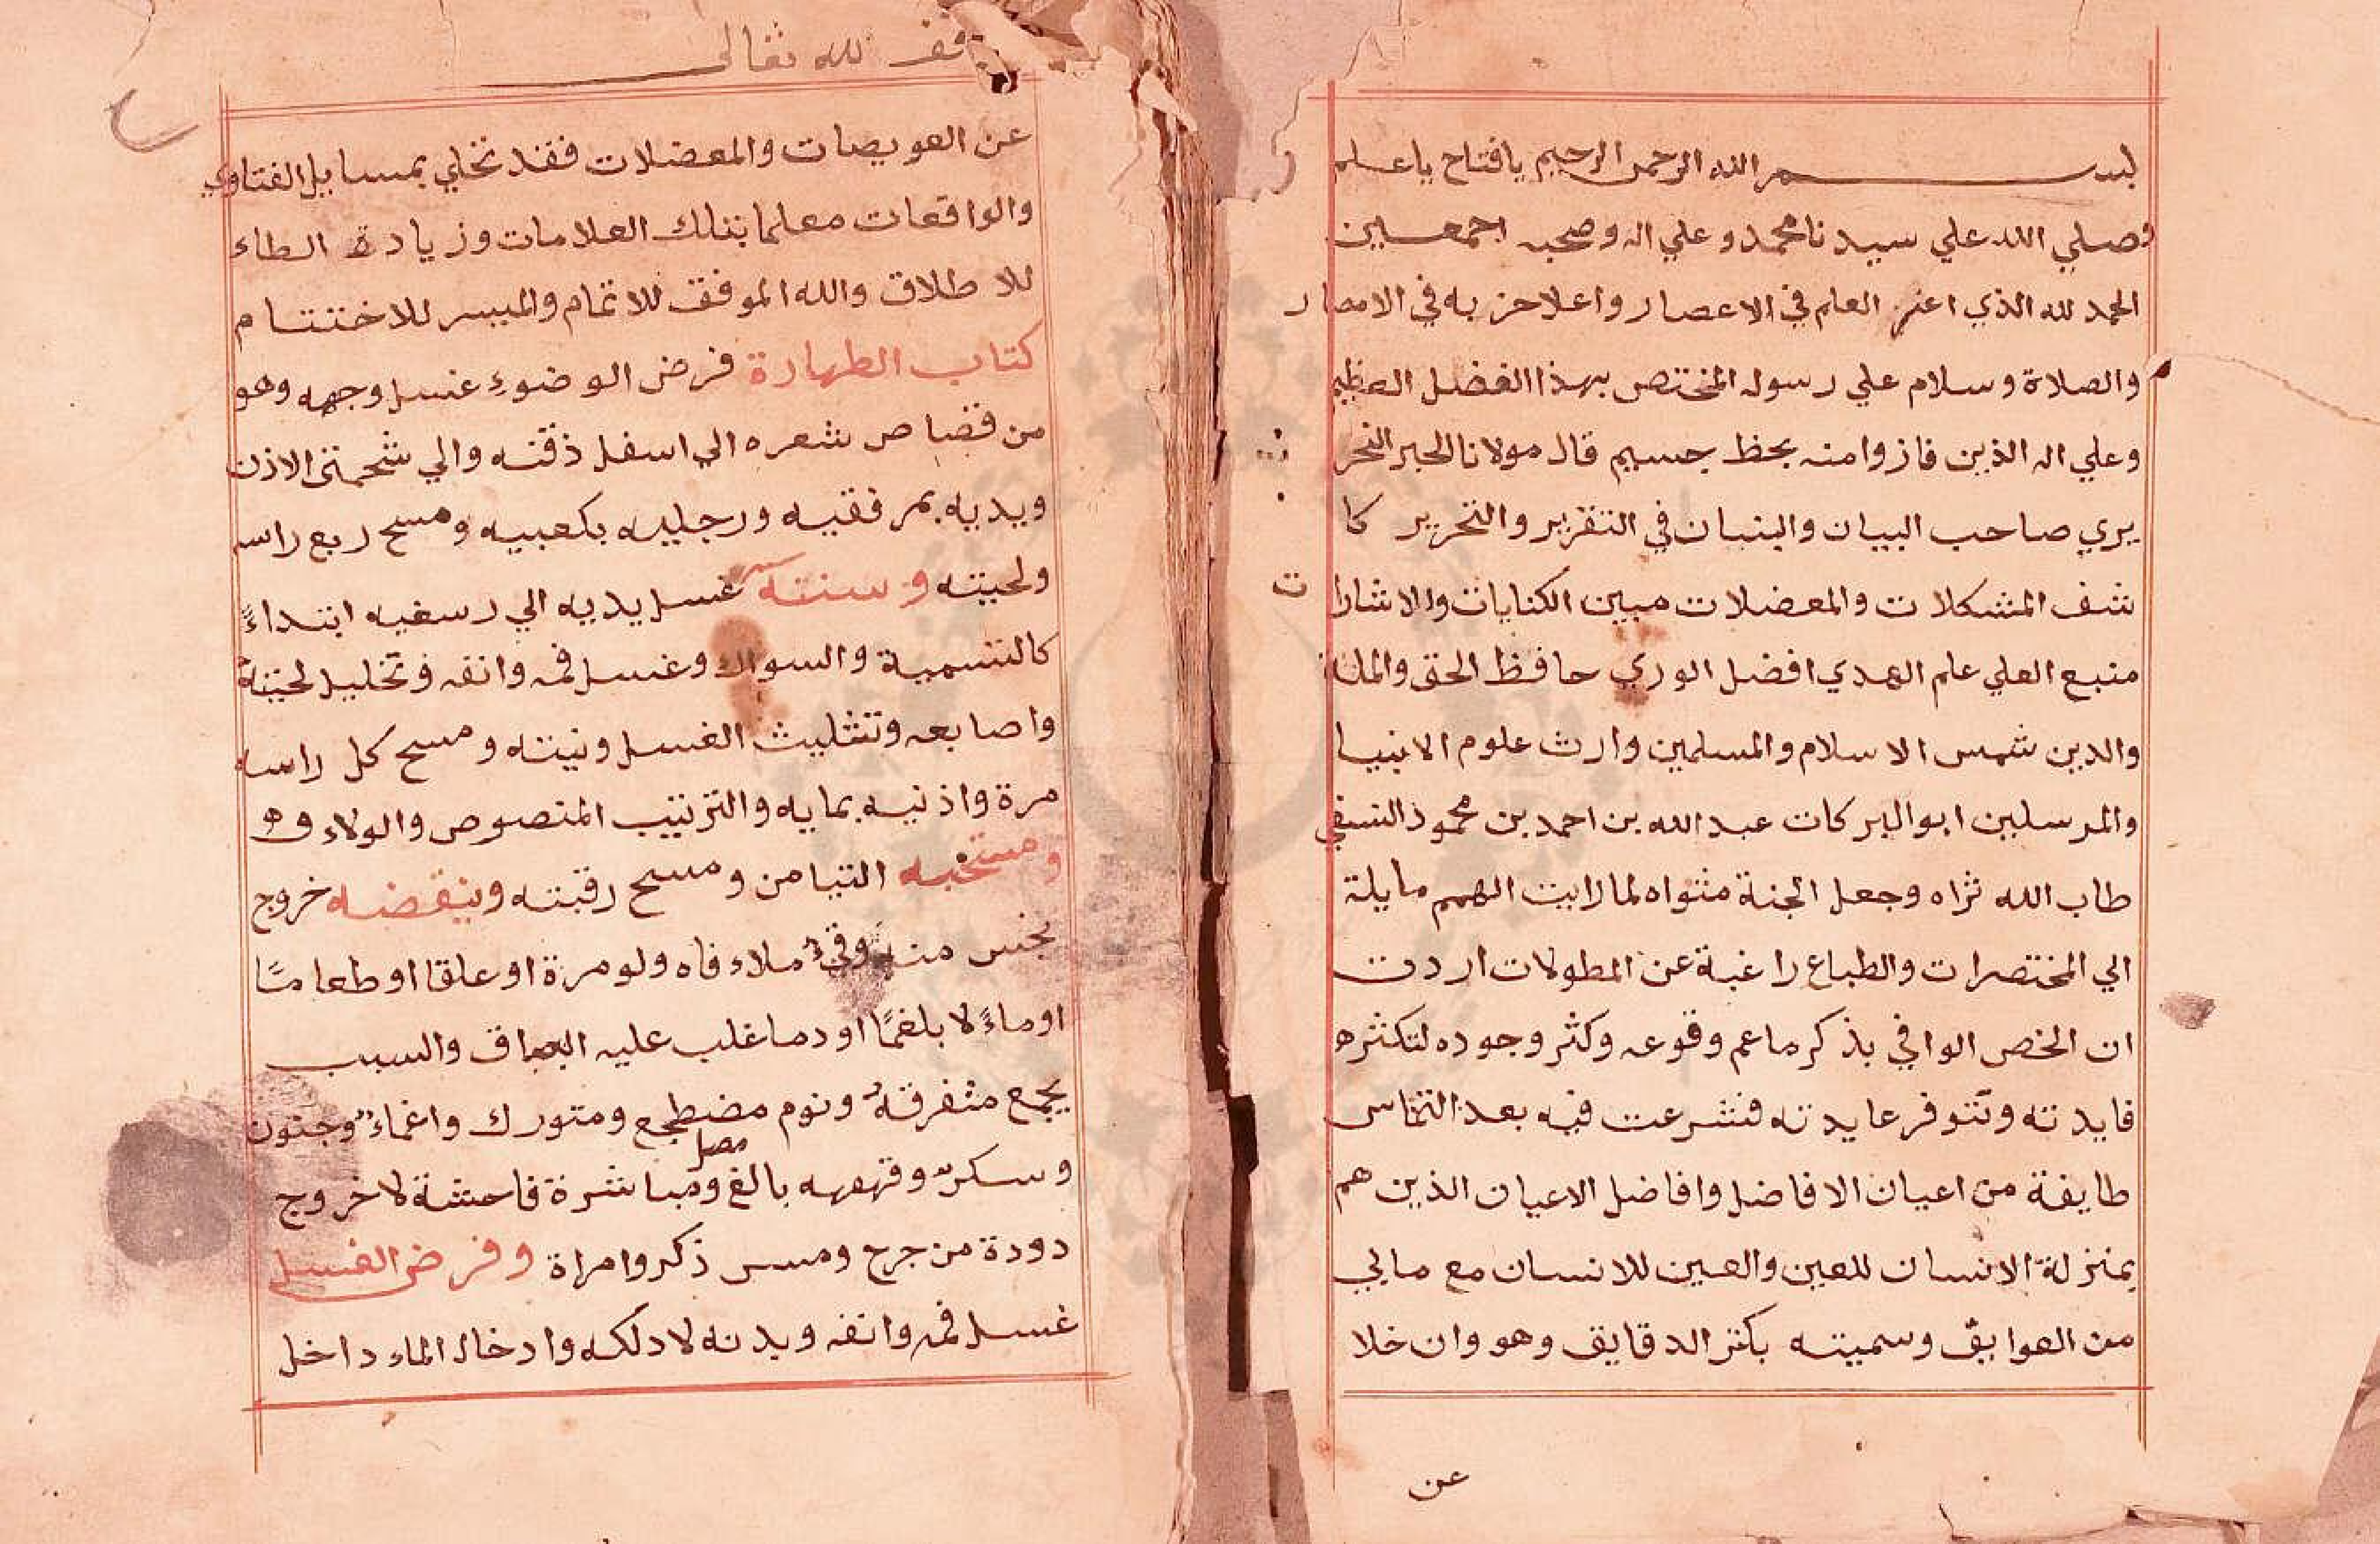 بسم الله الرحمن الرحيم يا فتاح يا علم
وصلي الله علي سيدنا محمد وعلي اله وصحبه اجمعين
الحمد لله الذي اعز العلم في الاعصار واعلا حزبه في الامصار
والصلاة وسلام علي رسوله المختص بهذا الفضل العظيم
وعلي اله الذين فازوا منه بحظ جسيم قال مولانا الحبر النحر
يري صاحب البيان والبنيان في التقرير والتحرير كا
شف المشكلات والمعضلات مبين الكنايات والاشارات
منبع العلي علم الهدي افضل الوري حافظ الحق والملة
والدين شمس الاسلام والمسلمين وارث علوم الانبيا
والمرسلين ابو البركات عبد الله بن احمد بن محمود النسفي
طاب الله ثراه وجعل الجنة مثواه لما رايت الهمم مايلة
الي المختصرات والطباع راغبة عن المطولات اردت
ان الخص الوافي بذكر ما عم وقوعه وكثر وجوده لتكثره
فايدته وتتوفر عايدته فشرعت فيه بعد التماس
طايفة من اعيان الافاضل وافاضل الاعيان الذين هم
بمنزلة الانسان للعين والعين للانسان مع ما بي
من العوايق وسميته بكنز الدقايق وهو وان خلا
عن
وقف لله تعالى
عن العويصات والمعضلات فقد تحلي بمسايل الفتاوي
والواقعات معلما بتلك العلامات وزيادة الطاء
للاطلاق والله الموفق للاتمام والميسر للاختتام
كتاب الطهارة فرض الوضوء غسل وجهه وهو
من قصاص شعره الي اسفل ذقنه والي شحمتى الاذن
ويديه بمرفقيه ورجليه بكعبيه ومسح ربع راسه
ولحيته وسنته غسل يديه الي رسغيه ابتداءً
كالتسمية والسواك وغسل فمه وانفه وتخليل لحيته
واصابعه وتثليث الغسل ونيته ومسح كل راسه
مرة واذنيه بمايه والترتيب المنصوص والولاء وهو
ومستحبه التيامن ومسح رقبته وينقضه خروج
نجس منه وقئ ملاء فاه ولو مرة او علقا او طعامًا
او ماءً لا بلغمًا او دما غلب عليه البصاق والسبب
يجمع متفرقه ونوم مضطجع ومتورك واغماء وجنون
وسكر وقهقهه بالغ مصل ومباشرة فاحشة لا خروج
دودة من جرح ومس ذكر وامراة وفرض الغسل
غسل فمه وانفه وبدنه لا دلكه وادخال الماء داخل